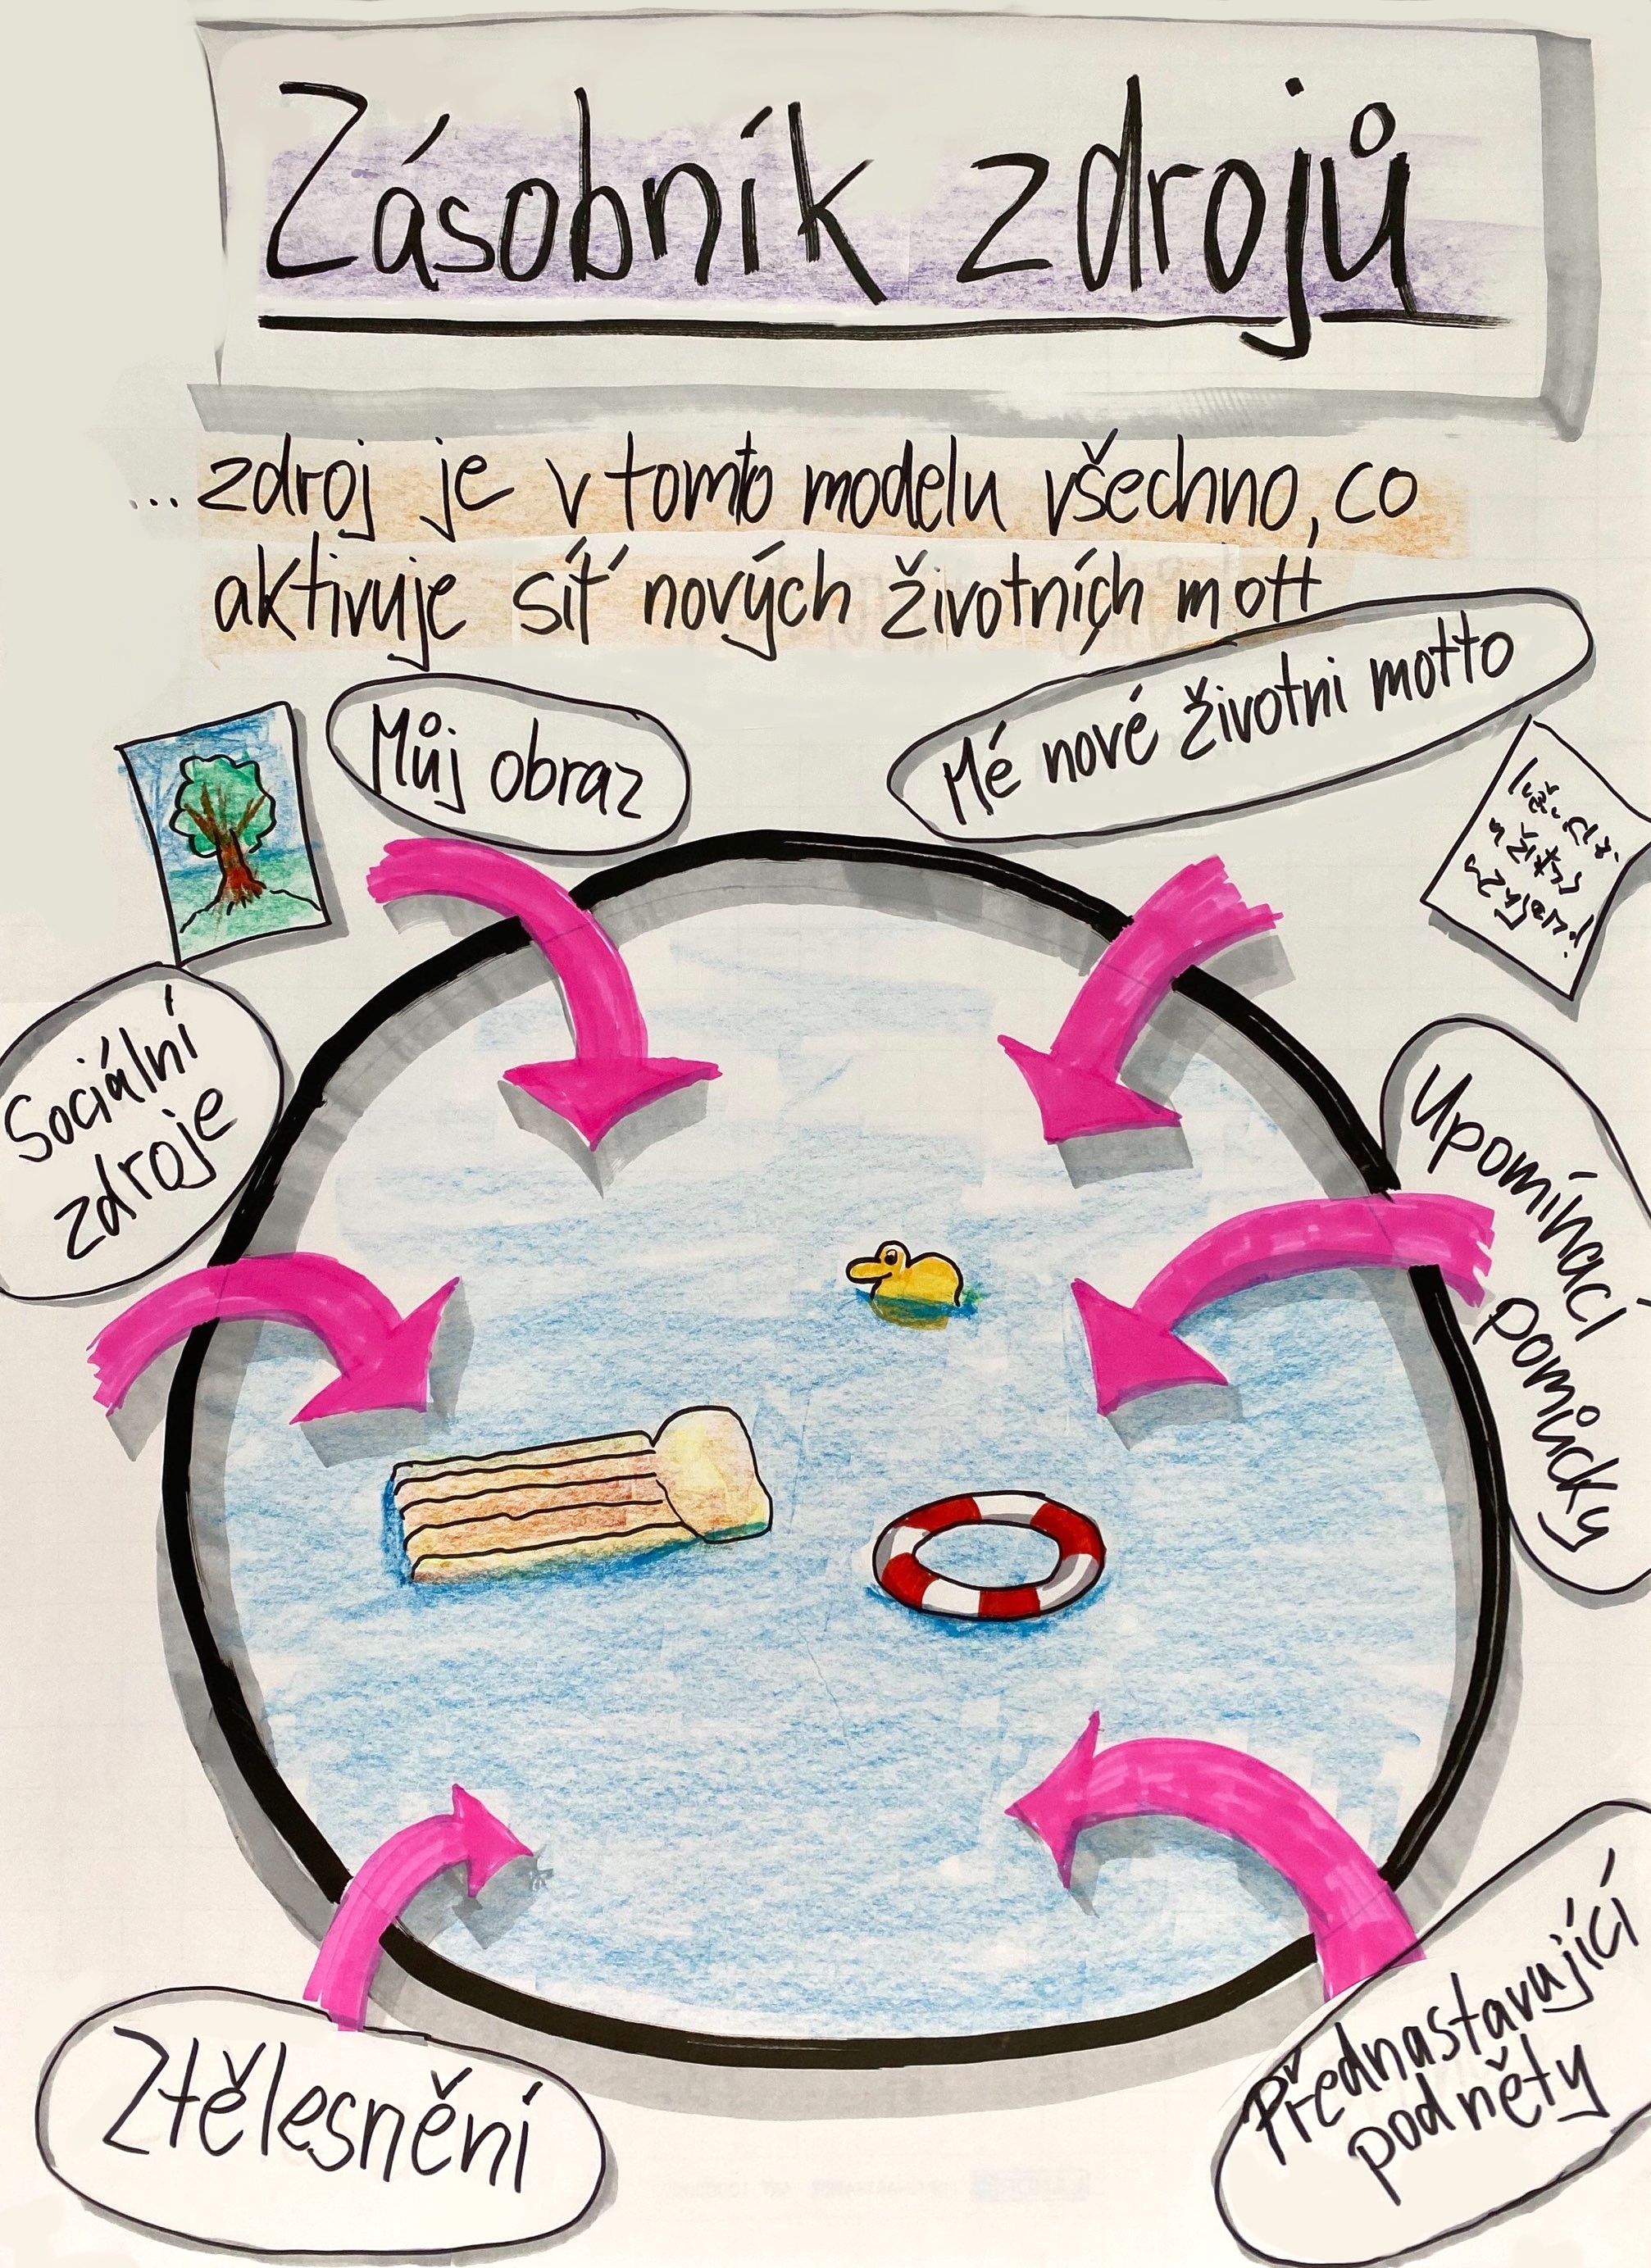 Zásobník zdrojů
...zdroj je v tomto modelu všechno, co
aktivuje síť nových životních mott
Můj obraz
Mé nové životni motto
Sociální
zdroje
Upomínací
pomůcky
Ztělesnění
Přednastavující
podněty